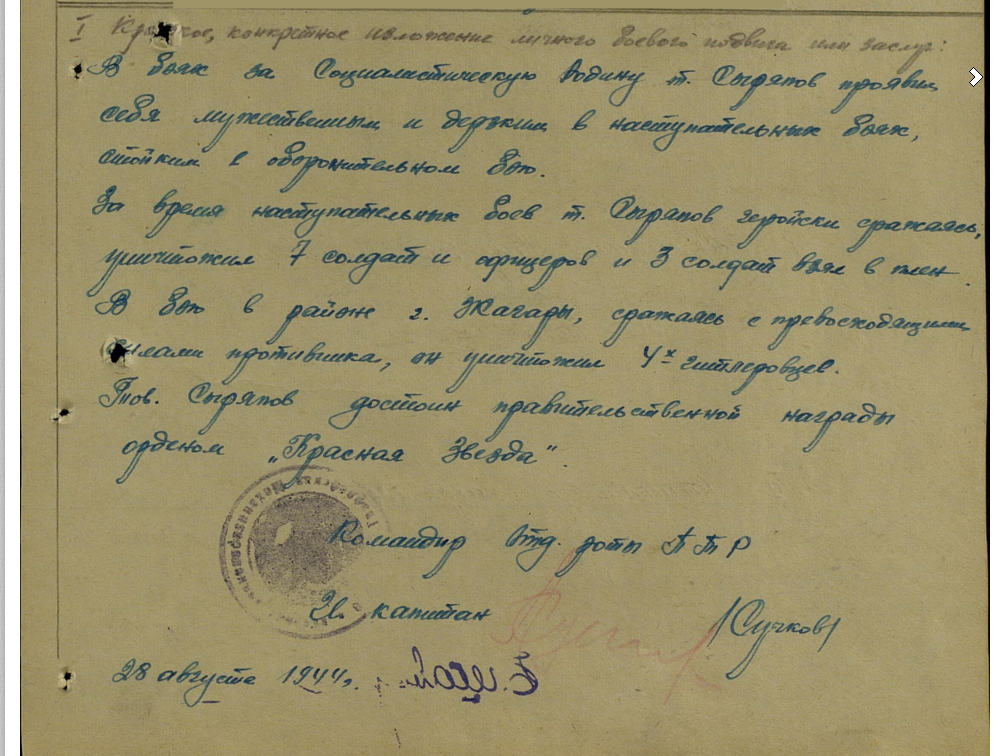 I Краткое, конкретное изложение личного боевого подвига или заслуг:
В боях за Социалистическую Родину т. Сыряпов проявил
себя мужественным и дерзким в наступательных боях,
стойким в оборонительном бою.
За время наступательных боев т. Сыряпов геройски сражаясь,
уничтожил 7 солдат и офицеров и 3 солдат взял в плен
В бою в районе г. Жагары, сражаясь с превосходящими
силами противника, он уничтожил 4х гитлеровцев.
Тов. Сыряпов достоин правительственной награды
орденом „Красная Звезда“.
Командир Отд. роты ПТР
Гв. капитан /Сучков/
28 августа 1944г.